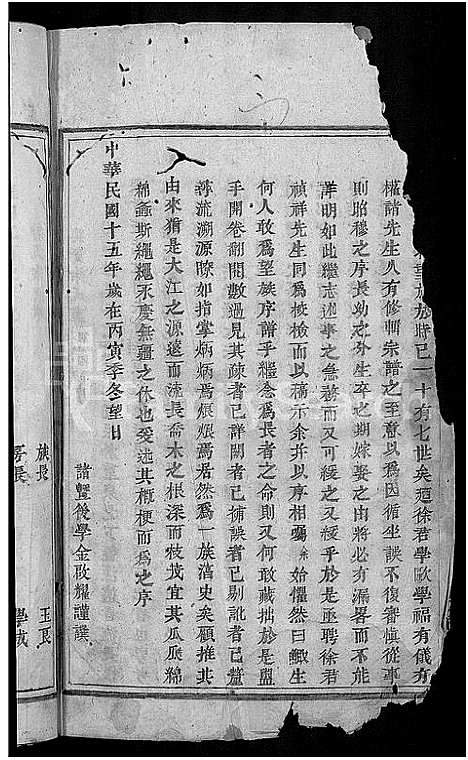 華族於時已一十有七世矣廼徐君學歐學福有儀有
權諸先生久有修輯宗譜之至意以爲因循坐誤不復審愼從事
則昭穆之序長幼之分生卒之期嫁娶之由將必有漏畧而不能
詳明如此繼志述事之急務而又緩之又緩乎於是亟聘徐君
禎祥先生同爲校檢而以稿示余并以序相囑余始懼然曰鯫生
何人敢爲望族序譜乎繼念爲長者之命則又何敢藏拙於是盥
手開卷翻閱數過見其疎者已詳闕者已補誤者已剔訛者已釐
尋流溯源瞭如指掌炳炳焉烺烺焉居然爲一族信史矣顧推其
由來猶是大江之源遠而流長喬木之根深而枝茂宜其瓜瓞綿
綿螽斯繩繩永慶無疆之休也爰述其梗槪而爲之序
中華民國十五年歲在丙寅季冬望日
諸曁後學金啟耀謹譔
族長
玉良
房長
學成